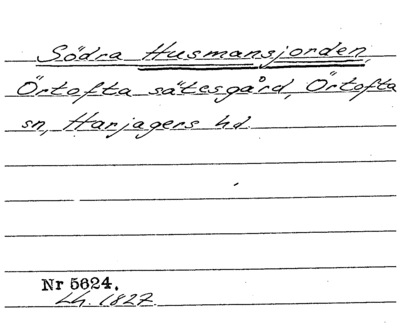 Södra Husmansjorden,
Örtofta sätesgård, Örtofta
sn, Harjagers hd.
Nr 5624.
Lh. 1827.